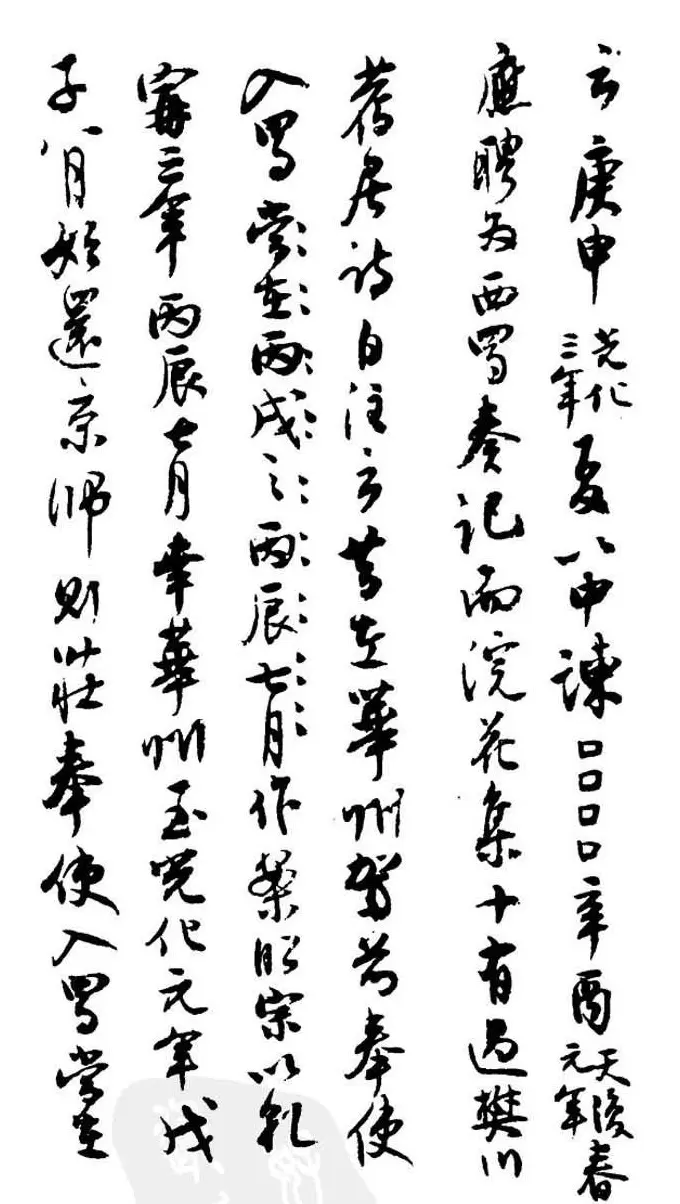 云庚申光化三年夏以中諫□□□□辛酉天復元年春
應聘為西蜀奏記而浣花集十有過樊川
舊居詩自注云時在華州駕前奉使
入蜀當在丙戌之丙辰七月作案昭宗以乾
寧三年丙辰七月幸華州至光化元年戊
子八月始還京師則莊奉使入蜀當在